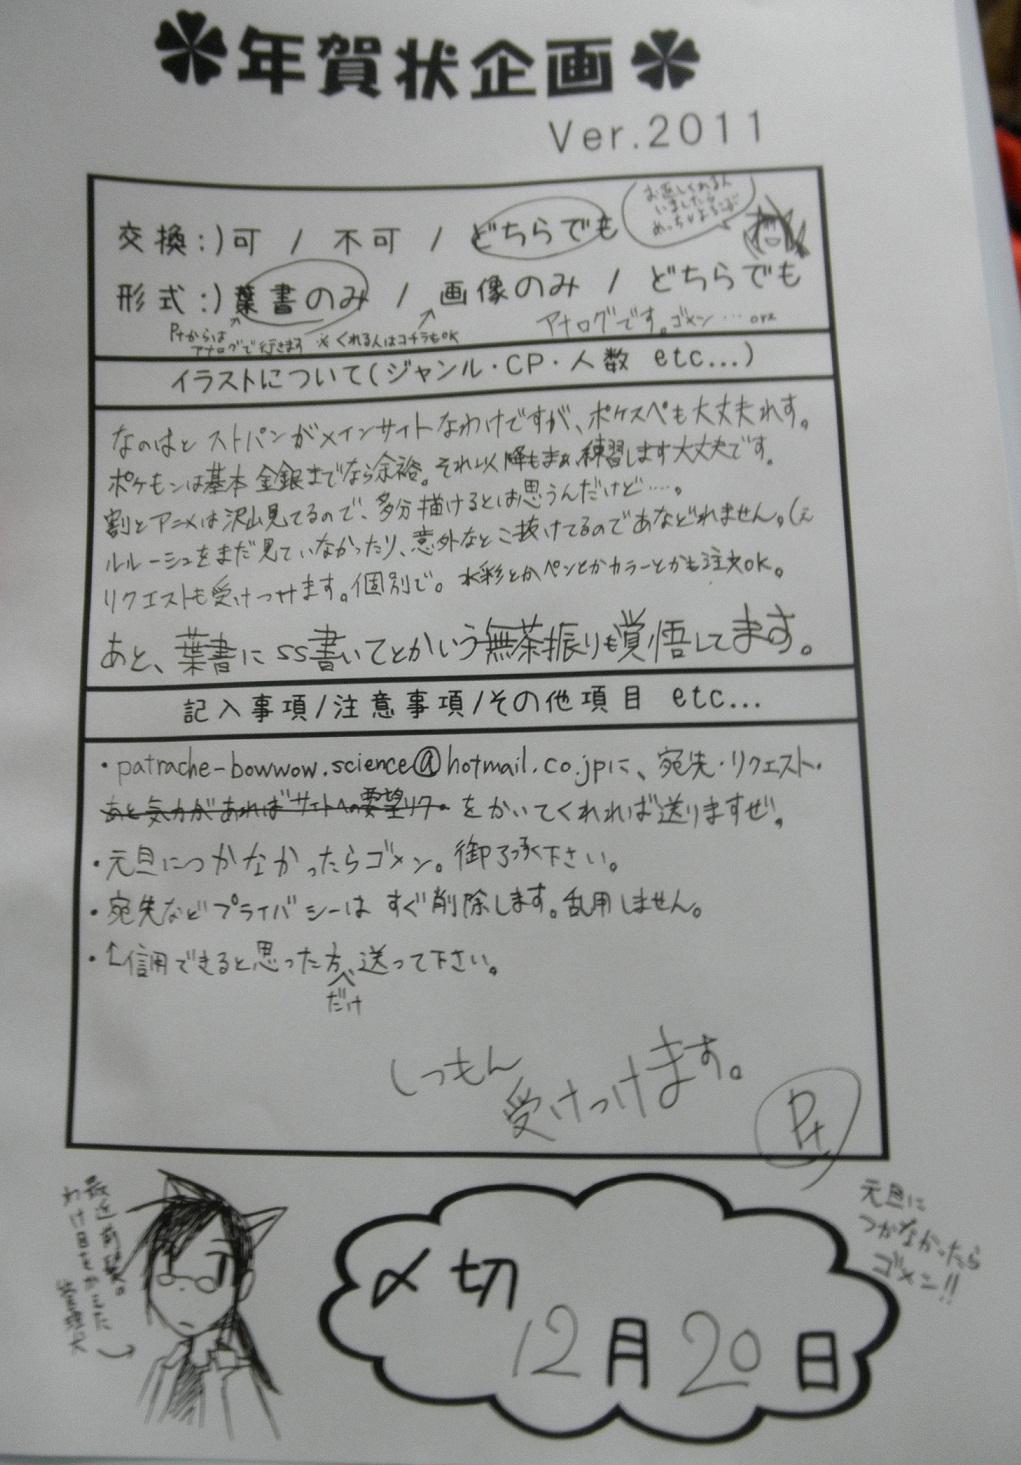 年賀状企画
Ver.2011
交換:)可 / 不可 / どちらでも
お返しくれる人
いましたら
めっちゃよろこぶ
形式:)葉書のみ / 画像のみ / どちらでも
Ptからは
アナログで行きます ※くれる人はコチラもOK
アナログです。ゴメン…orz
イラストについて(ジャンル・CP・人数 etc...)
なのはと ストパンがメインサイトなわけですが、ポケスペも大丈夫れす。
ポケモンは基本 金銀までなら余裕。それ以降もまぁ、練習します大丈夫です。
割とアニメは沢山見てるので、多分描けるとは思うんだけど……。
ルルーシュをまだ見ていなかったり、意外なとこ抜けてるのであなどれません。(え
リクエストも受けつけます。個別で。水彩とかペンとかカラーとかも注文OK。
あと、葉書にSS書いてとかいう無茶振りも覚悟してます。
記入事項/注意事項/その他項目 etc...
・patrache-bowwow.science@hotmail.co.jpに、宛先・リクエスト・
あと気力があればサイトへの要望リク。をかいてくれれば送りますぜ。
・元旦につかなかったらゴメン。御了承下さい。
・宛先などプライバシーは すぐ削除します。乱用しません。
・↑信用できると思った方、送って下さい。
だけ
しつもん
受けつけます。
Pt
最近前髪の
わけ目をかえた
管理犬
〆切
12月20日
元旦に
つかなかったら
ゴメン!!